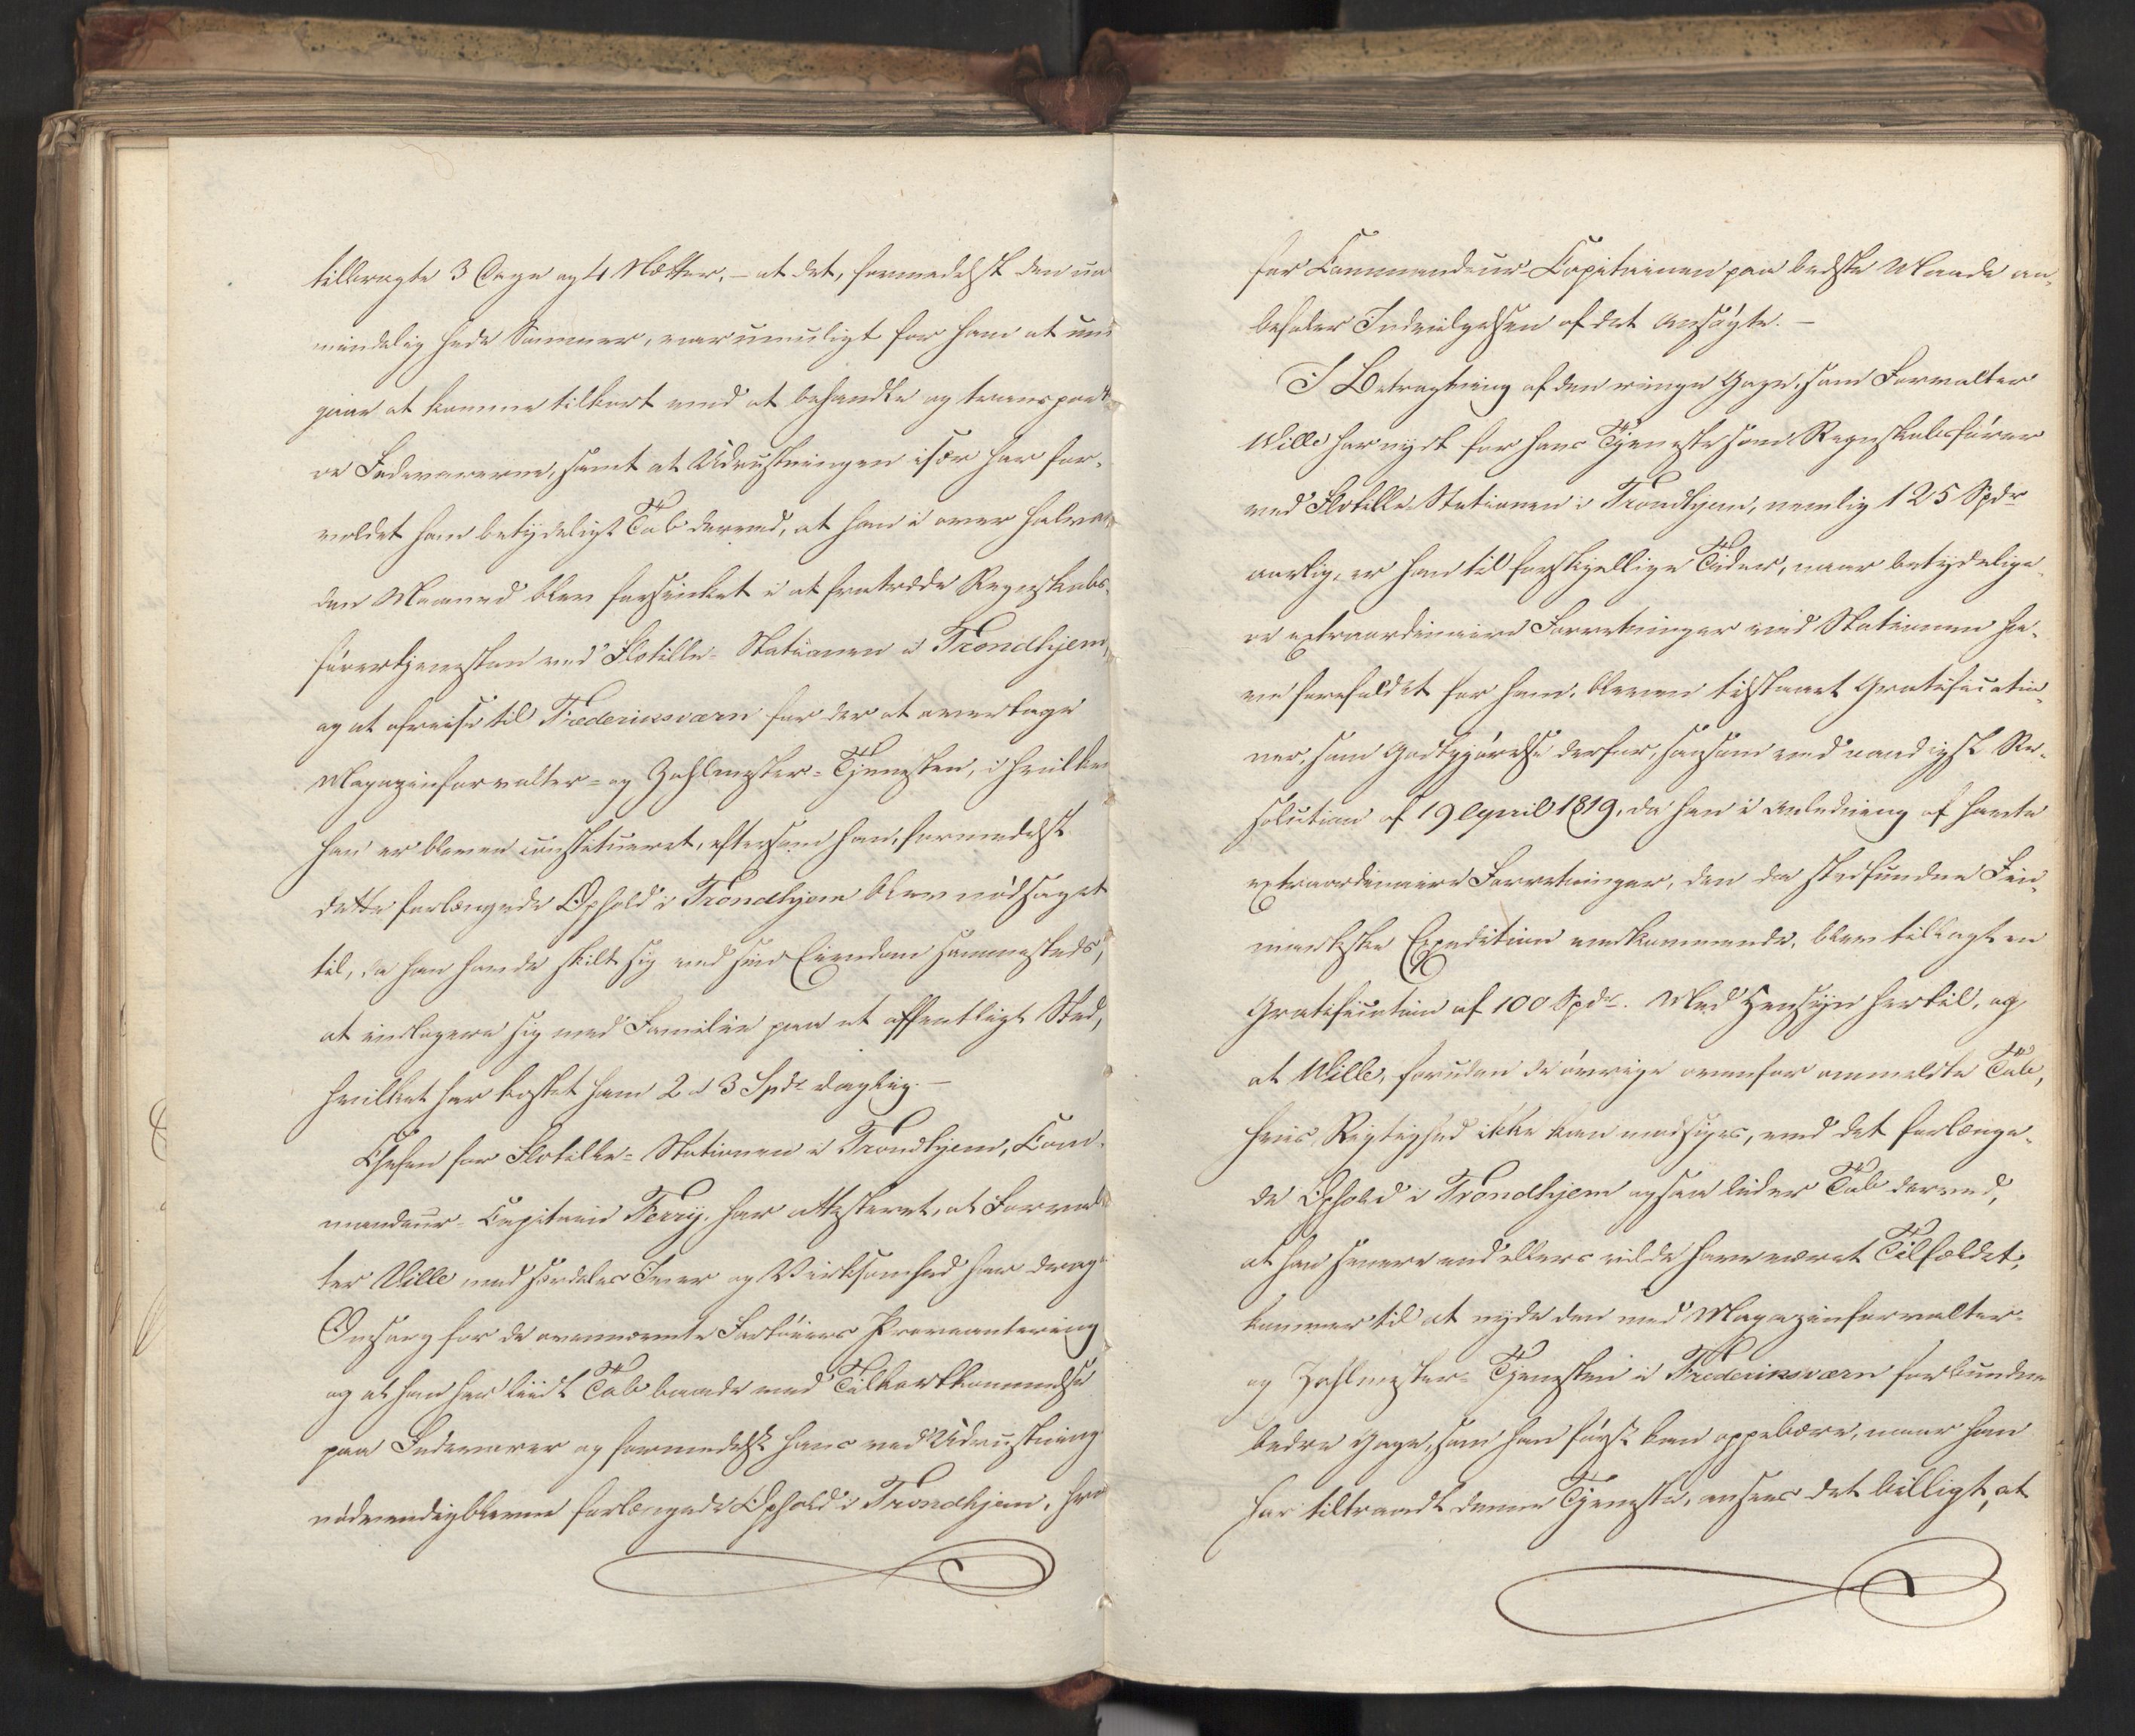 tilbragte 3 Dage og 4 Nætter, – at det, formedelst den ual
mindelig hede Sommer, var umuligt for ham at und
gaae at komme tilkort med at behandle og transporte
re Fedevarerne, samt at Udrustningen især har for-
voldet ham betydeligt Tab derved, at han i over halvan-
den Maaned blev forsinket i at fratræde Regnskabs-
førertjenesten ved Flotille-Stationen i Trondhjem,
og at afreise til Frederiksværn for der at overtage
Magazinforvalter- og Zahlmester-Tjenesten, i hvilken
han er bleven constitueret, eftersom han, formedelst
dette forlængede Ophold i Trondhjem blev nødsaget
til, da han havde skilt sig ved sin Eiendom sammesteds,
at indlogere sig med Familie paa et offentligt Sted,
hvilket har kostet ham 2 à 3 Spdr daglig. –
Chefen for Flotille-Stationen i Trondhjem, Com-
mandeur-Capitain Ferry, har attesteret, at Forval-
ter Wille med særdeles Iver og Virksomhed har drag
Omsorg for de ovennævnte Fartøiers Proviantering
og at han har liidt Tab baade ved Tilkortkommelse
paa Fedevarer og formedelst hans ved Udrustning
nødvendigblevne forlængede Ophold i Trondhjem, hvor
for Commandeur-Capitainen paa bedste Maade an-
befaler Indvilgelsen af det Ansøgte. –
I Betragtning af den ringe Gage, som Forvalter
Wille har nydt for hans Tjeneste som Regnskabsfører
ved Flotille-Stationen i Trondhjem, nemlig 125 Spdr
aarlig, er han til forskjellige Tider, naar betydelige-
re extraordinaire Forretninger ved Stationen ha-
ve forefaldet for ham, bleven tilstaaet Gratificatio-
ner, som Godtgjørelse derfor, saasom ved naadigst Re-
solution af 19 April 1819, da han i Anledning af havte
extraordinaire Forretninger, den da stedfundne Fin-
markske Expedition vedkommende, blev tillagt en
Gratification af 100 Spdr. Med Hensyn hertil, og
at Wille, foruden de øvrige ovenfor ommeldte Tab,
hvis Rigtighed ikke kan modsiges, ved det forlænge-
de Ophold i Trondhjem ogsaa lider Tab derved,
at han senere end ellers vilde have været Tilfældet,
kommer til at nyde den med Magazinforvalter-
og Zahlmester-Tjenesten i Frederiksværn forbundne
bedre Gage, som han først kan oppebære, naar han
har tiltraadt denne Tjeneste, ansees det billigt, at